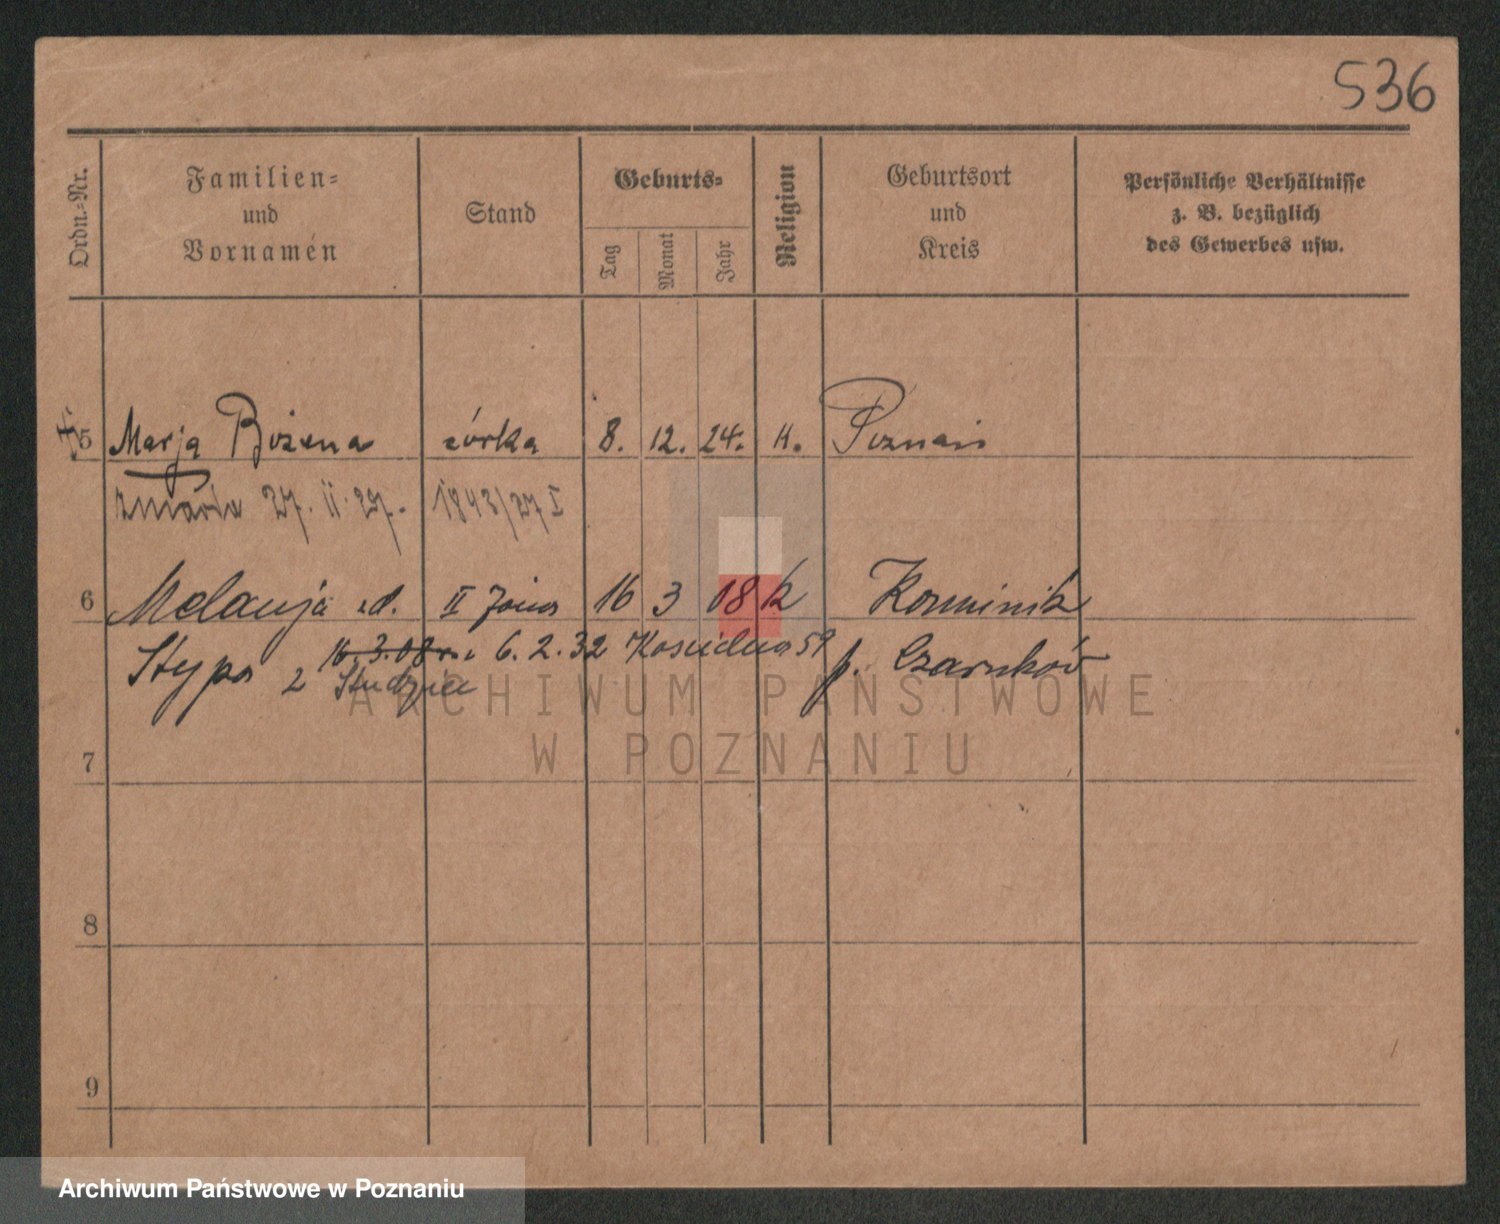 536
Ordn.-Nr.
Familien-
und
Vornamen
Stand
Geburts-
Tag
Monat
Jahr
Religion
Geburtsort
und
Kreis
Persönliche Verhältnisse
z. B. bezüglich
des Gewerbes usw.
5 Marja Bożena córka 8. 12. 24. k. Poznań
zmarła 27. II. 27. 1843/27 I
6 Melanja z d. II żona 16 3 08 k Kominik
Stypa 16.3.08 r. 6. 2. 32 59 p. Czarnków
z
7
8
9
ARCHIWUM PAŃSTWOWE
W POZNANIU
Archiwum Państwowe w Poznaniu